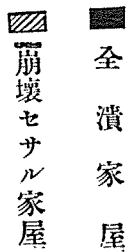 全潰家屋
崩壊セサル家屋